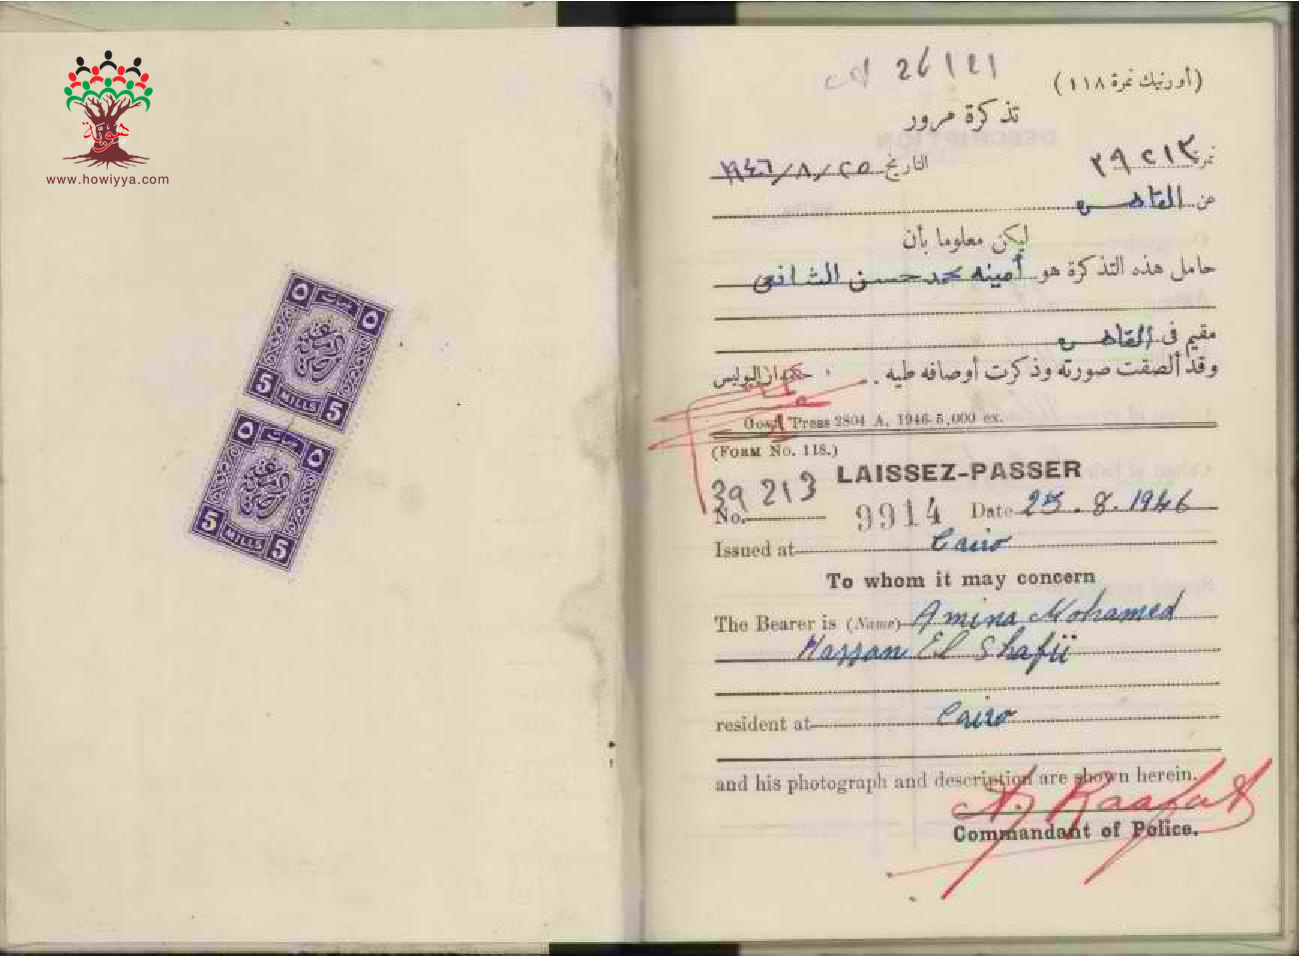 هوية
www.howiyya.com
٥ ٥
5 MILLS 5
٥ ٥
5 MILLS 5
26121
(أورنيك نمرة ١١٨)
تذكرة مرور
نمرة ٣٩٢١٣ التاريخ ٢٥/٨/١٩٤٦
عن القاهره
ليكن معلوما بأن
حامل هذه التذكرة هو أمينه محمد حسن الشافعى
مقيم فى القاهره
وقد ألصقت صورته وذكرت أوصافه طيه . حكمدار البوليس
Govt. Press 2804 A, 1946-5,000 ex.
(FORM No. 118.)
LAISSEZ-PASSER
39213
No. 9914 Date 25.8.1946
Issued at Cairo
To whom it may concern
The Bearer is (Name) Amina Mohamed
Hassan El Shafii
resident at Cairo
and his photograph and description are shown herein.
Raafat
Commandant of Police.